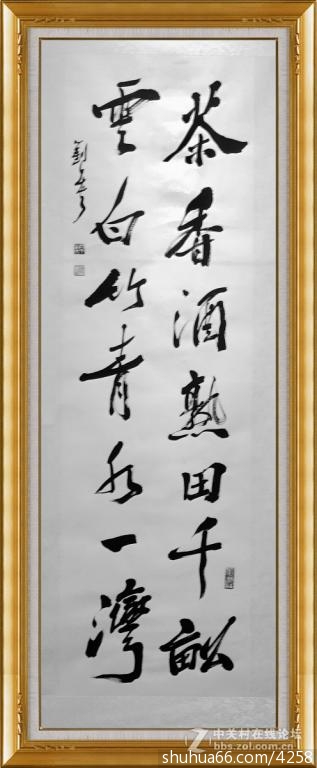 茶香酒熟田千畝
雲白竹青水一灣
劉
中关村在线论坛
bbs.zol.com.cn
shuhua66.com/4258